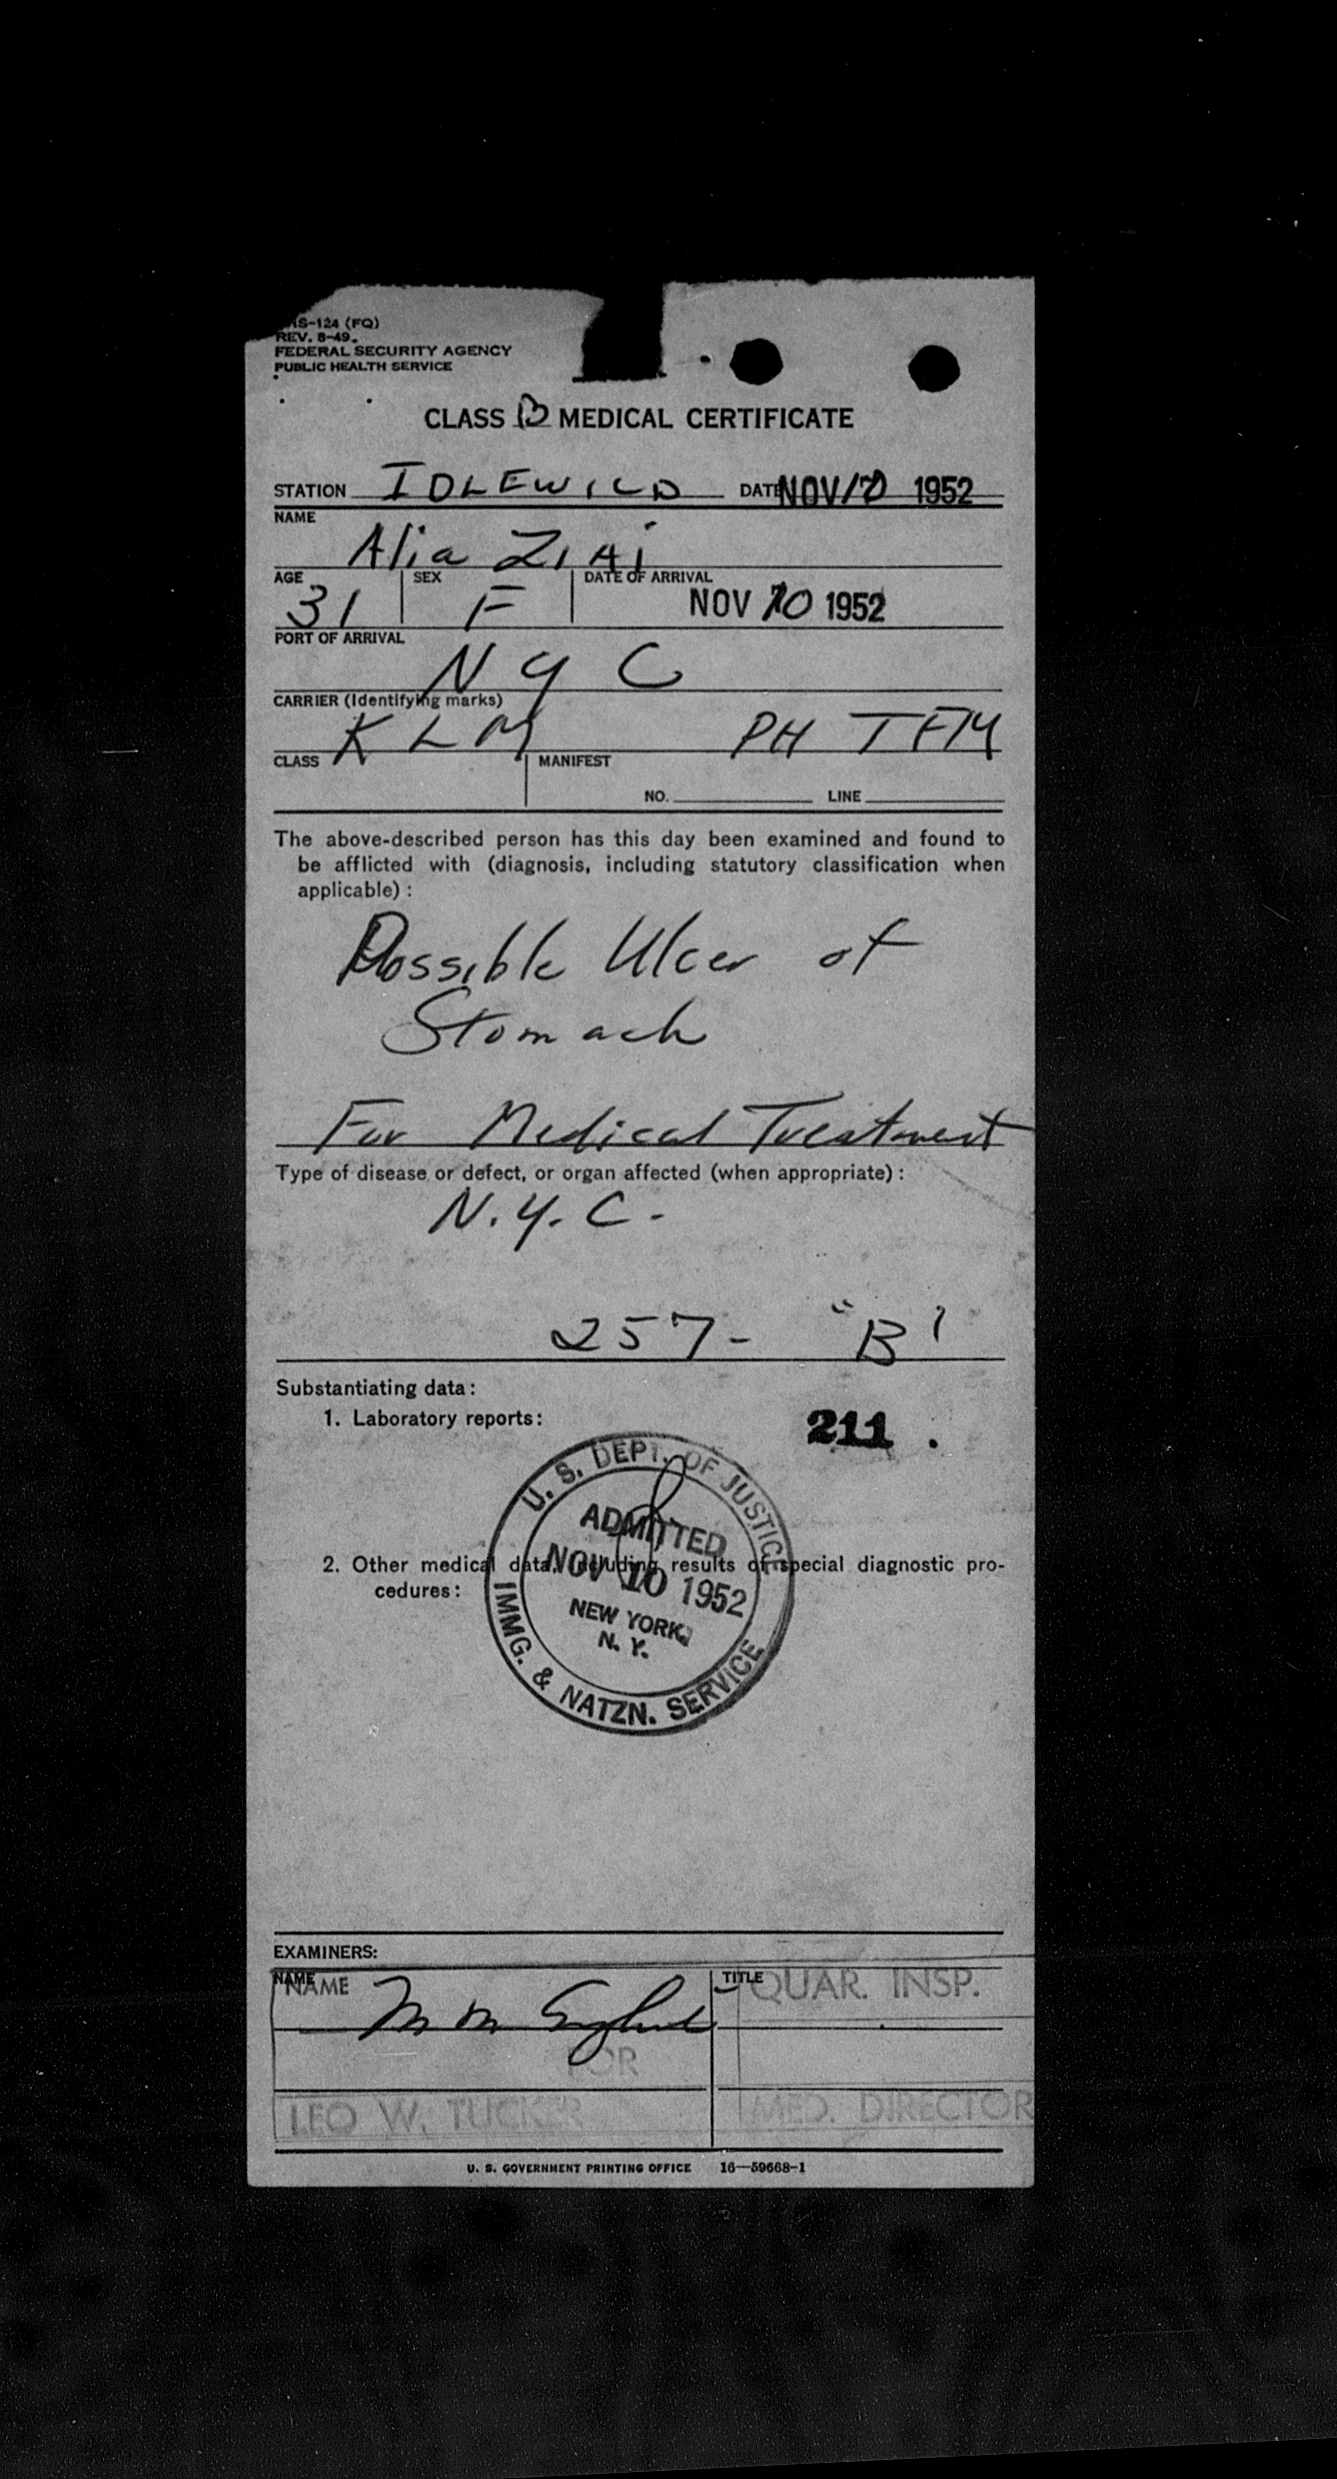 HS-124 (FQ)
REV. 8-49.
FEDERAL SECURITY AGENCY
PUBLIC HEALTH SERVICE
CLASS B MEDICAL CERTIFICATE
STATION IDLEWILD DATE NOV 10 1952
NAME
Alia ZIAi
AGE SEX DATE OF ARRIVAL
31 F NOV 10 1952
PORT OF ARRIVAL
NYC
CARRIER (Identifying marks)
KLM PH TFM
CLASS MANIFEST
NO. LINE
The above-described person has this day been examined and found to
be afflicted with (diagnosis, including statutory classification when
applicable):
Possible Ulcer of
Stomach
For Medical Treatment
Type of disease or defect, or organ affected (when appropriate):
N.Y.C.-
257- "B"
Substantiating data:
1. Laboratory reports:
211.
U. S. DEPT. OF JUSTICE
ADMITTED
2. Other medical data, including results of special diagnostic pro-
cedures:
NOV 10 1952
NEW YORK,
N. Y.
IMMG. & NATZN. SERVICE
EXAMINERS:
NAME TITLE
NAME QUAR. INSP.
M M
FOR
LEO W. TUCKER MED. DIRECTOR
U. S. GOVERNMENT PRINTING OFFICE 16—59668-1